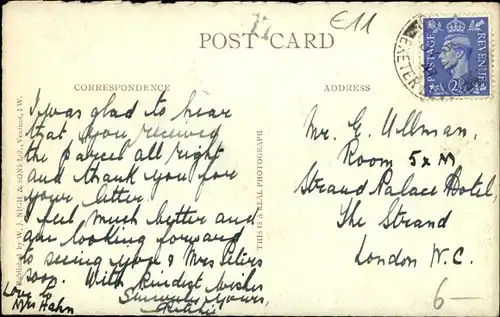 E11
POST CARD
EXETER
POSTAGE REVENUE
2½
CORRESPONDENCE
ADDRESS
I was glad to hear
that you received
the parcel all right
and thank you for
your letter.
I feel much better and
am looking forward
to seeing you & Mrs Peters
soon. With kindest wishes
Sincerely yours,
Love to
Mrs Hahn
Mr. E. Ullman,
Room 5 x M
Strand Palace Hotel,
The Strand
London W.C.
6—
Published by W. J. NIGH & SONS Ltd., Ventnor, I.W.
THIS IS A REAL PHOTOGRAPH